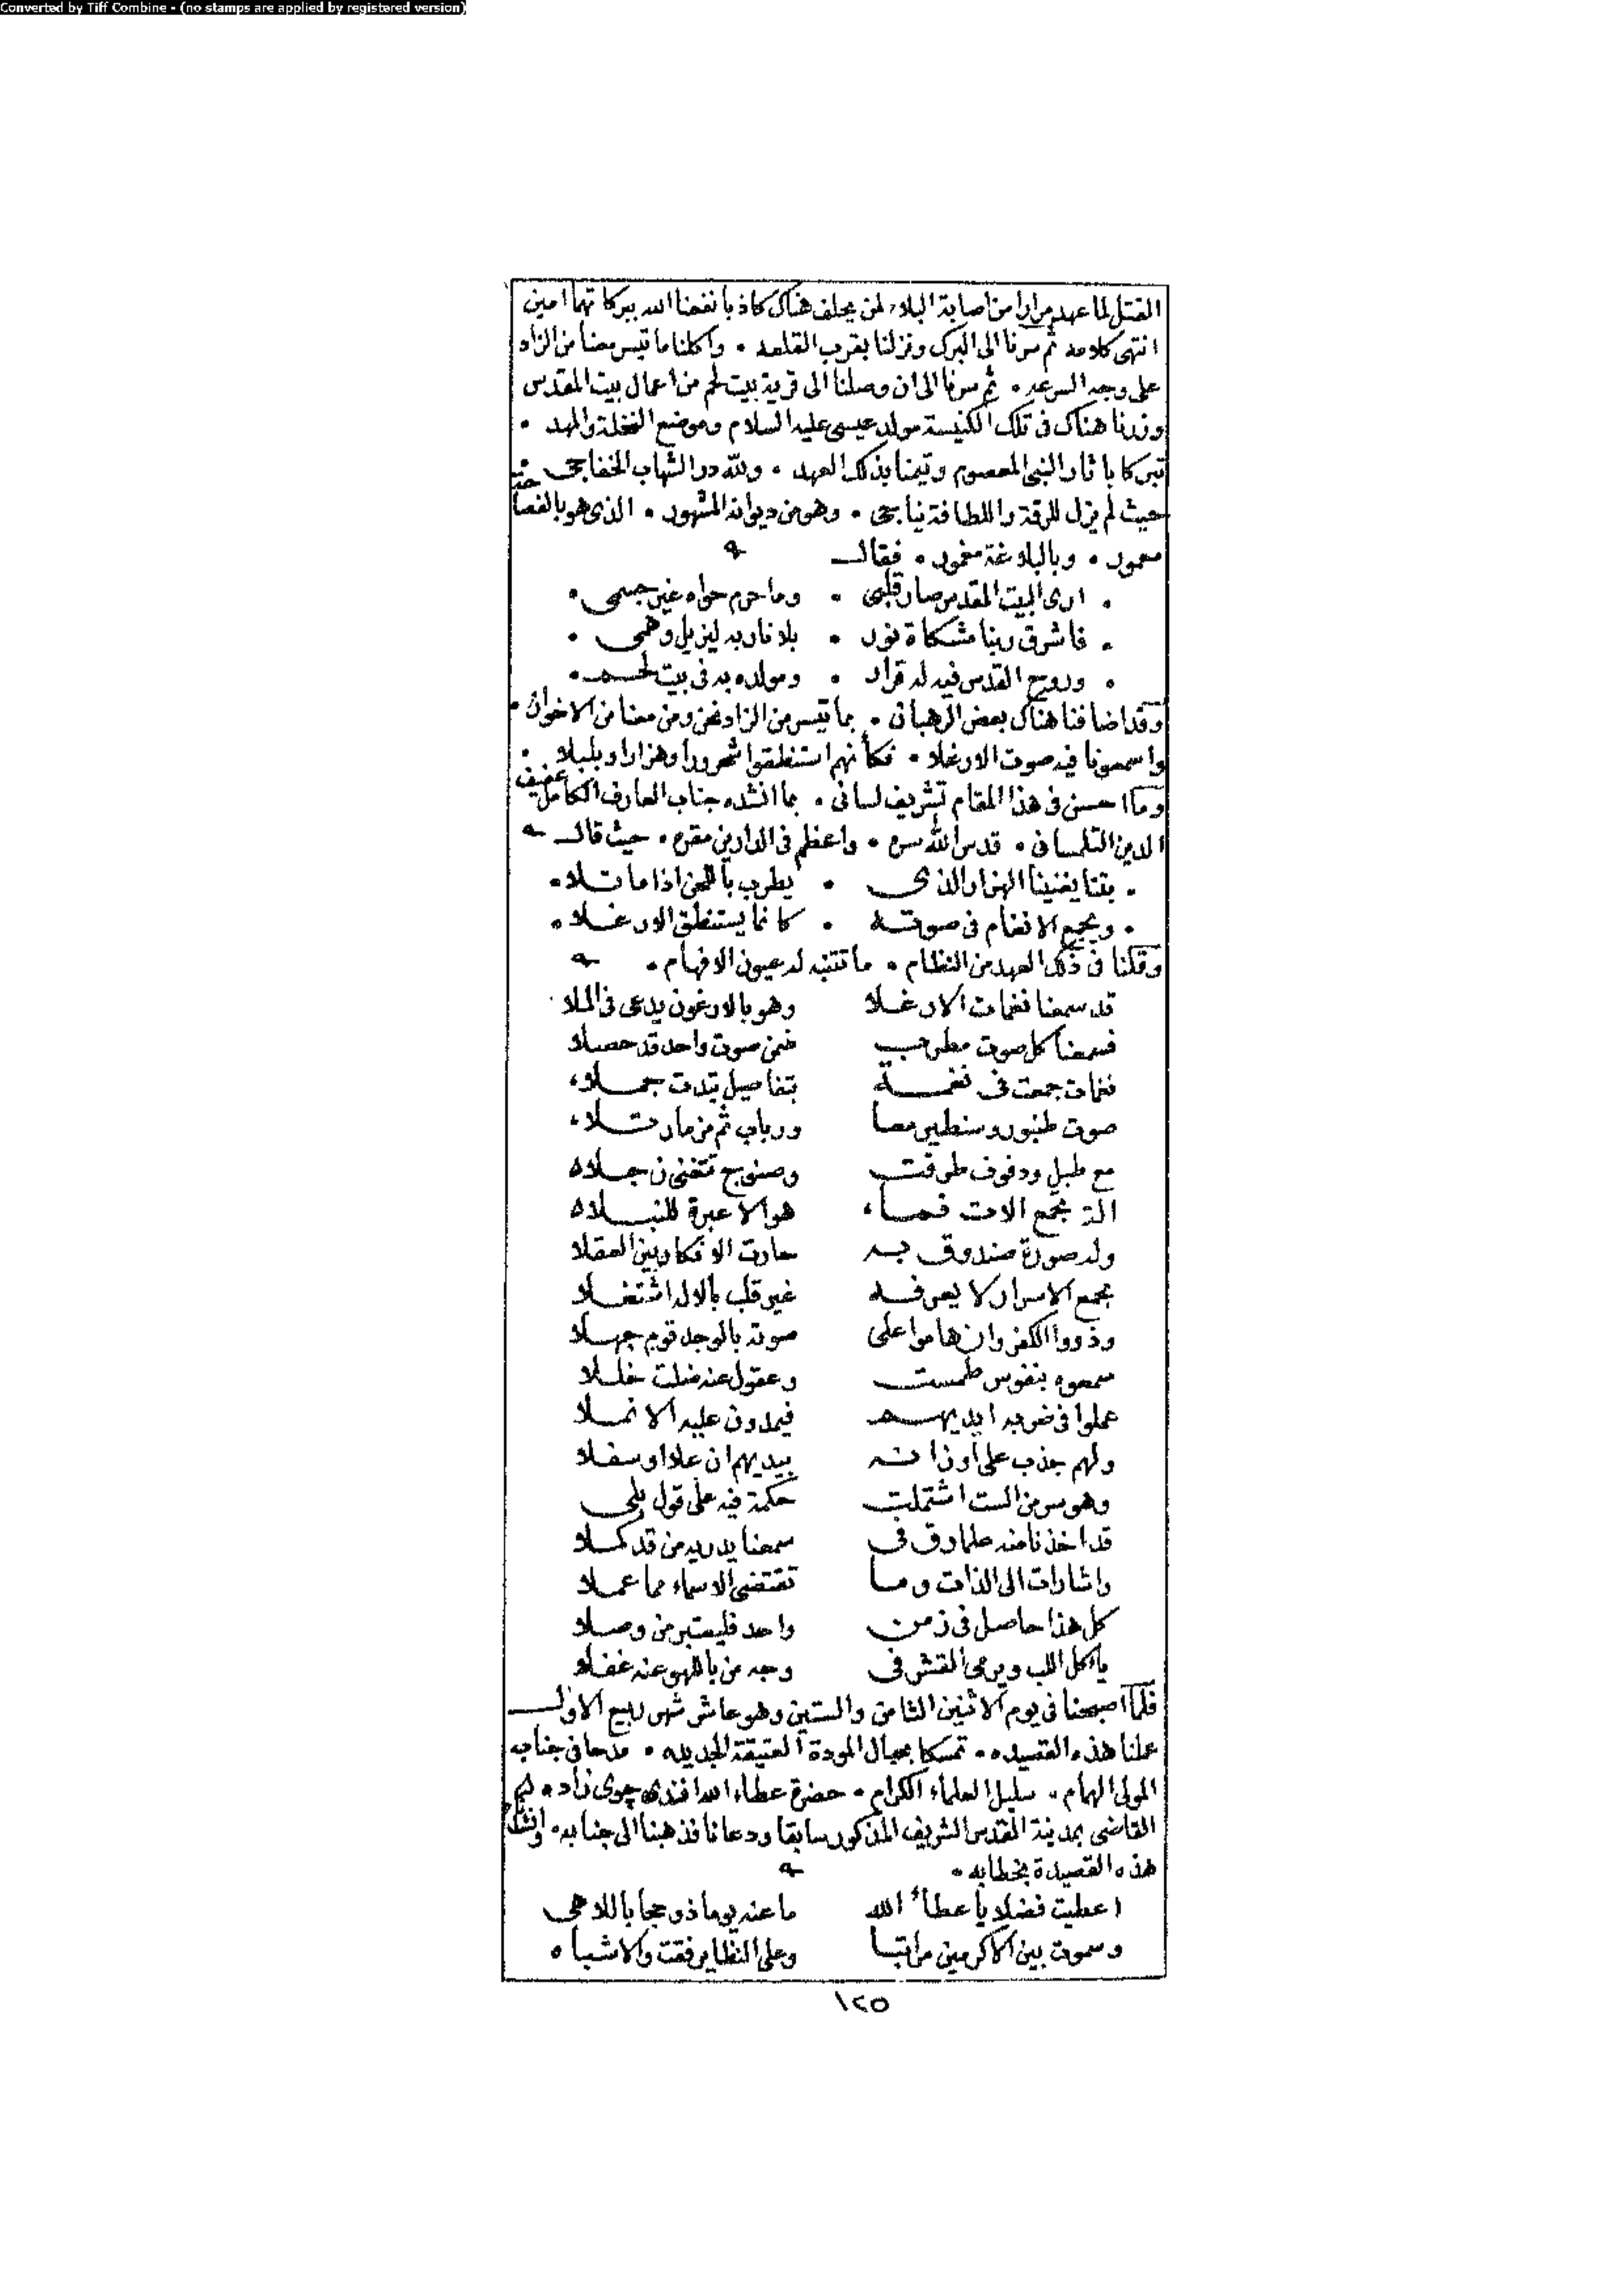 Converted by Tiff Combine - (no stamps are applied by registered version)
القتل لما عهد مرارا من اصابة البلاء لمن يحلف هناك كاذبا نفعنا الله ببركاتهما امين
انتهى كلامه ثم سرنا الى البرك ونزلنا بقرب القلعه • واكلنا ما تيسر معنا من الزاد
على وجه السرعه • ثم سرنا الى ان وصلنا الى قرية بيت لحم من اعمال بيت المقدس
وزرنا هناك فى تلك الكنيسة مولد عيسى عليه السلام وموضع النخلة والمهد •
تبركا باثار النبى المعصوم وتيمنا بذلك العهد • ولله در الشهاب الخفاجى
حيث لم يزل للرقة واللطافة يناجى • وهو من ديوانه المشهور • الذى هو بالفصاحة
معمور • وبالبلاغة مغمور • فقال
• ارى البيت المقدس صار قلبى • وما حرم حواه غير جسمى •
• فاشرق ربنا مشكاة نور • بلا نار به ليزيل وهمى •
• وروح القدس فيه له قرار • ومولده به فى بيت لحم •
وقد اضافنا هناك بعض الرهبان • بما تيسر من الزاد نحن ومن معنا من الاخوان •
واسمعونا فيه صوت الارغلا • فكأنهم استنطقوا شحرورا وهزارا وبلبلا •
وما احسن فى هذا المقام تشريف لسانى • بما انشده جناب العارف الكامل عفيف
الدين التلمسانى • قدس الله سره • واعظم فى الدارين مقره • حيث قال
• بتنا يغنينا الهزار الذى • يطرب باللحن اذا ما تلا •
• ويجمع الانغام فى صوته • كانما يستنطق الارغلا •
وقلنا فى ذلك العهد من النظام • ما تتنبه له عيون الافهام •
قد سمعنا نغمات الارغلا وهو بالارغون يدعى فى الملا
فسمعنا كل صوت مطرب ضمن صوت واحد قد حصلا
نغمات جمعت فى نغمة بتفاصيل تبدت جملا
صوت طنبور وسنطير معا ورباب ثم مزمار تلا
مع طبل ودفوف طرقت وصنوج تتغنى زجلا
الة تجمع الات فما هو الا عبرة للنبلا
وله صورة صندوق به حارت الافكار بين العقلا
مجمع الاسرار لا يعرفه غير قلب بالاله اشتغلا
وذووا الكفر وان هاموا على صوته بالوجد قوم جهلا
سمعوه بنفوس طمست وعقول عنه ضلت خللا
عملوا فى ضربه ايديهم فيمدون عليه الانملا
ولهم جذب على اوزانه بيديهم ان علا او سفلا
وهو سر من الست اشتملت حكمة فيه على قول بلى
قد اخذنا منه علما وق فى سمعنا يدريه من قد كملا
واشارات الى الذات وما تقتضى الاسماء مما عملا
كل هذا حاصل فى زمن واحد فليعتبر من وصلا
يأكل اللب ويرمى القشر فى وجه من باللهو عنه غفلا
فلما اصبحنا فى يوم الاثنين الثامن والستين وهو عاشر شهر ربيع الاول
عملنا هذه القصيده • تمسكا بحبال المودة العتيقة الجديده • مدحا فى جناب
المولى الهمام • سليل العلماء الكرام • حضرة عطاء الله افندى چوى زاده
القاضى بمدينة القدس الشريف المذكور سابقا ودعانا فذهبنا الى جنابه •
هذه القصيدة بخطابه •
اعطيت فضلا يا عطاء الله ما عنه يوما ذو حجا باللاهى
وسموت بين الاكرمين مراتبا وعلى النظاير فقت والاشباه
١٢٥